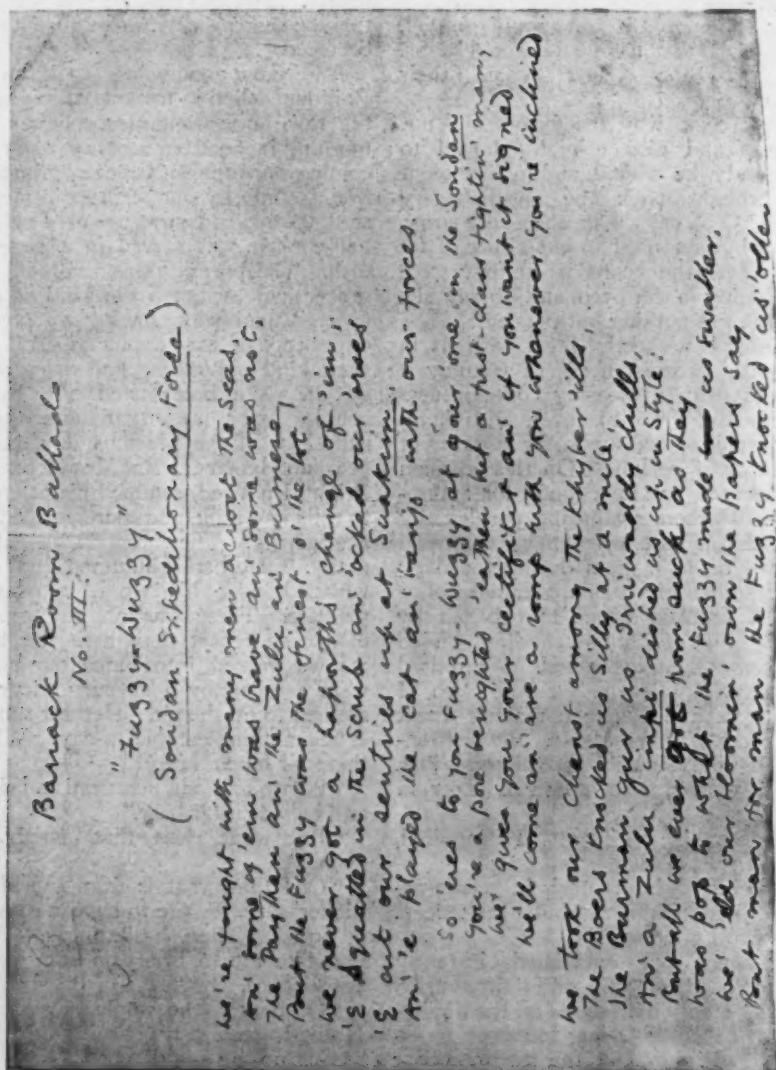 Barrack Room Ballads
No. III.
"Fuzzy-Wuzzy"
(Soudan Expeditionary Force)
We've fought with many men acrost the Seas,
An' some of 'em was brave an' some was not,
The Paythan an' the Zulu an' Burmese,
But the Fuzzy was the finest o' the lot.
We never got a haporth's change of 'im;
'E squatted in the Scrub an' 'ocked our 'orses
'E cut our sentries up at Suakim
An' 'e played the cat an' banjo with our forces.
So 'eres to you Fuzzy-Wuzzy at your 'ome in the Soudan
You're a pore benighted 'eathen but a fust-class fightin' man,
We gives you your certifikit an' if you want it signed
We'll come an' 'ave a romp with you whenever you're inclined
We took our chanst among the Khyber 'ills,
The Boers knocked us silly at a mile,
The Burman guv us Irriwaddy chills,
An' a Zulu impi dished us up in style:
But all we ever got from such as they
Was pop to what the Fuzzy made us swaller,
We 'eld our bloomin' own the papers say
But man for man the Fuzzy knocked us 'oller